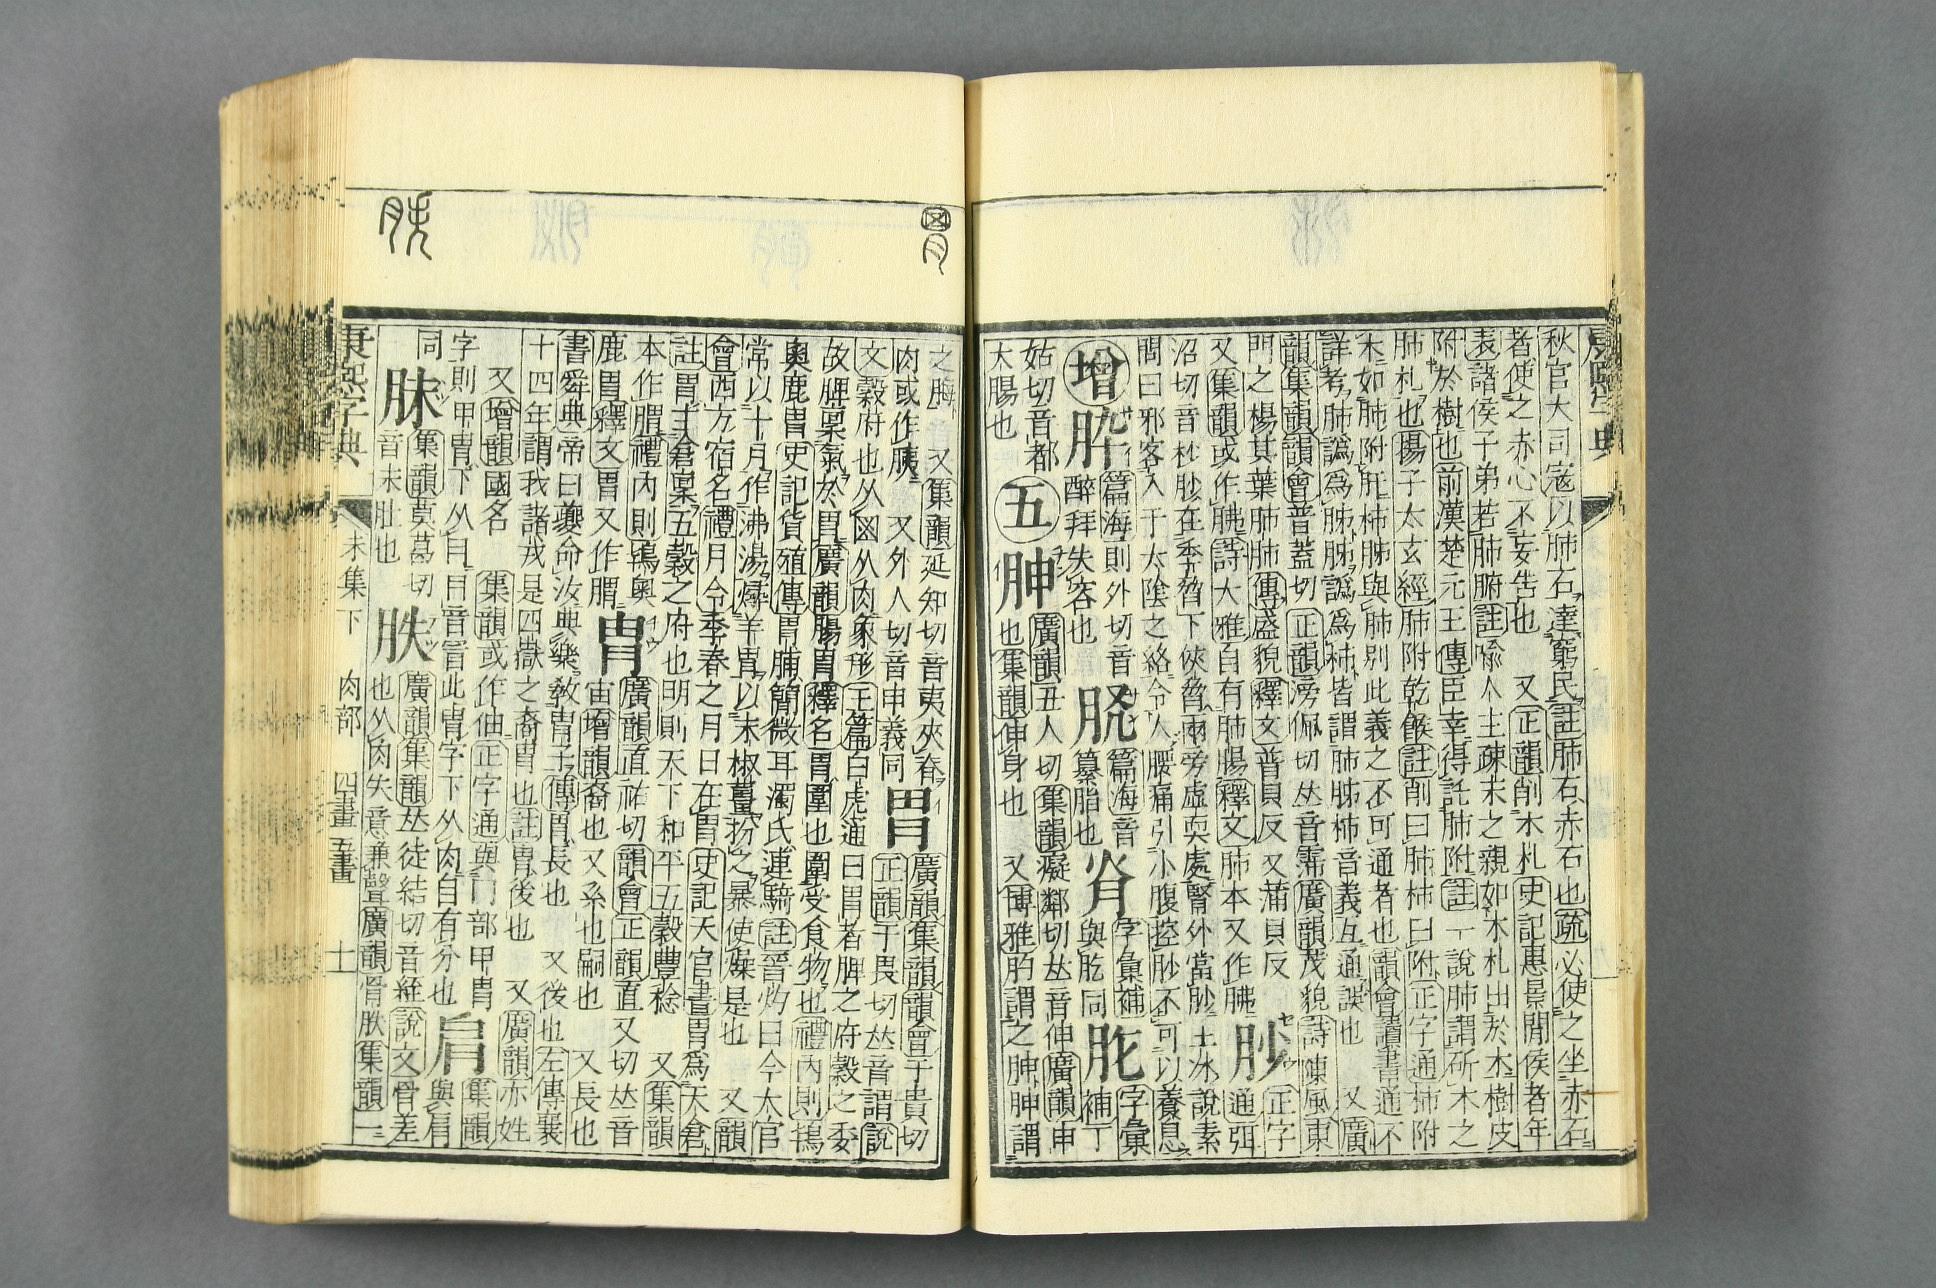 康熙字典
秋官大司寇以肺石達窮民註肺石赤石也疏必使之坐赤石
者使之赤心不妄告也　又正韻削木札史記惠景閒侯者年
表諸侯子弟若肺腑註喩人主疎末之親如木札出於木樹皮
附於樹也前漢楚元王傳臣幸得託肺附註一說肺謂斫木之
肺札也揚子太玄經肺附乾餱註削曰肺柿曰附正字通柿附
木如肺附肝柿胏與肺別此義之不可通者也韻會讀書通不
詳考肺譌爲胏胏譌爲柹皆謂肺胏柿音義互通誤也　又廣
韻集韻韻會普蓋切正韻滂佩切𠀤音霈廣韻茂貌詩陳風東
門之楊其葉肺肺傳盛貌釋文普貝反又蒲貝反
又集韻或作胇詩大雅自有肺腸釋文肺本又作胇
䏚
正字通弭
沼切音杪䏚在季脅下俠脅兩旁虛耎處腎外當䏚土冰說素
問曰邪客入于太陰之絡令人腰痛引小腹控䏚不可以養息
增
脺
篇海則外切音
醉拜失容也
篇海音
纂脂也
字彙補
與肐同
字彙
補丁
姑切音都
大腸也
五
胂
廣韻丑人切集韻癡鄰切𠀤音伸廣韻申
也集韻伸身也　又博雅胂謂之脢胂謂
之脢　又集韻延知切音夷夾脊
肉或作胰　又外人切音申義同
胃
廣韻集韻韻會于貴切
正韻于畏切𠀤音謂說
文穀府也从𡇒从肉象形玉篇白虎通曰胃者脾之府穀之委
故脾稟氣於胃廣韻腸胃釋名胃圍也圍受食物也禮內則鴇
奧鹿胃史記貨殖傳胃脯簡微耳濁氏連騎註晉灼曰今太官
常以十月作沸湯燖羊胃以末椒薑扮之暴使燥是也　又韻
會西方宿名禮月令季春之月日在胃史記天官書胃爲天倉
註胃主倉稟五穀之府也明則天下和平五穀豐稔　又集韻
本作䐴禮內則鴇奧
鹿胃釋文胃又作䐴
冑
廣韻直祐切韻會正韻直又切𠀤音
宙增韻裔也又系也嗣也　又長也
書舜典帝曰夔命汝典樂敎冑子傳冑長也　又後也左傳襄
十四年謂我諸戎是四嶽之裔冑也註冑後也　又廣韻亦姓
又增韻國名　集韻或作伷正字通與冂部甲冑
字則甲冑下从冃冃音冒此冑字下从肉自有分也
肩
集韻
與肩
同
䏞
集韻莫葛切
音末肚也
胅
廣韻集韻𠀤徒結切音絰說文骨差
也从肉失意兼聲廣韻骨胅集韻一
康熙字典　未集下　肉部　四畫　五畫　十一